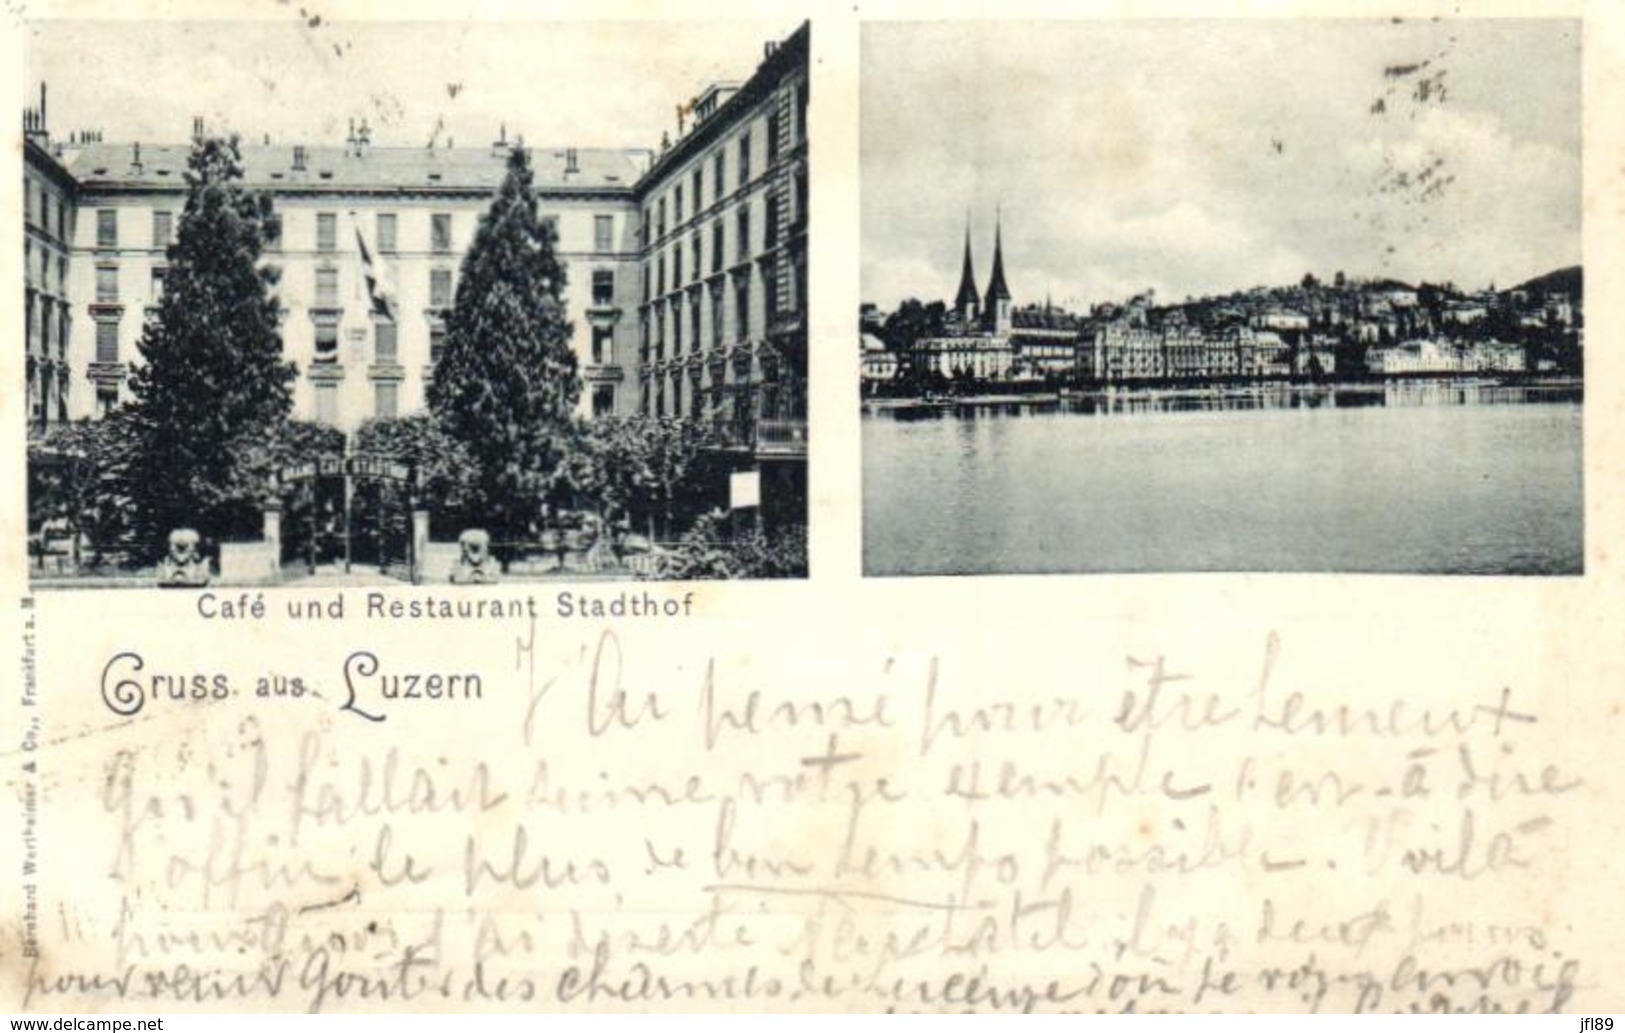 CAFÉ STADTHOF
Café und Restaurant Stadthof
Gruss aus Luzern
Bernhard Wertheimer & Co., Frankfurt a. M.
J'Ai pensé pour être heureux
qu'il fallait suivre votre exemple c'est-à dire
s'offrir le plus de bon temps possible. Voilà
pourquoi j'ai déserté Neuchâtel il y a deux jours
pour venir Goûter des charmes de Lucerne d'où je vous envoie
www.delcampe.net
jfl89